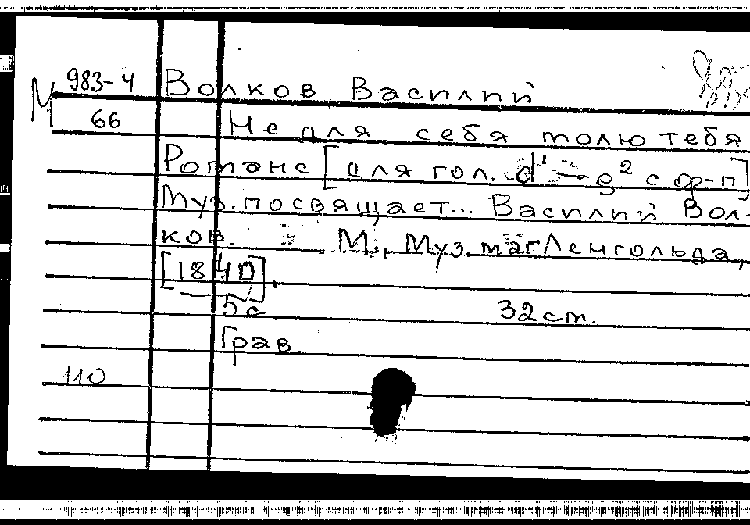 М 983-4 Волков Василий
66 Не для себя молю тебя
Романс [для гол. d¹ — g² с ф-п]
Муз. посвящает... Василий Вол-
ков. М., Муз. маг Ленгольда,
[1840].
5с 32 cm.
Грав.
110